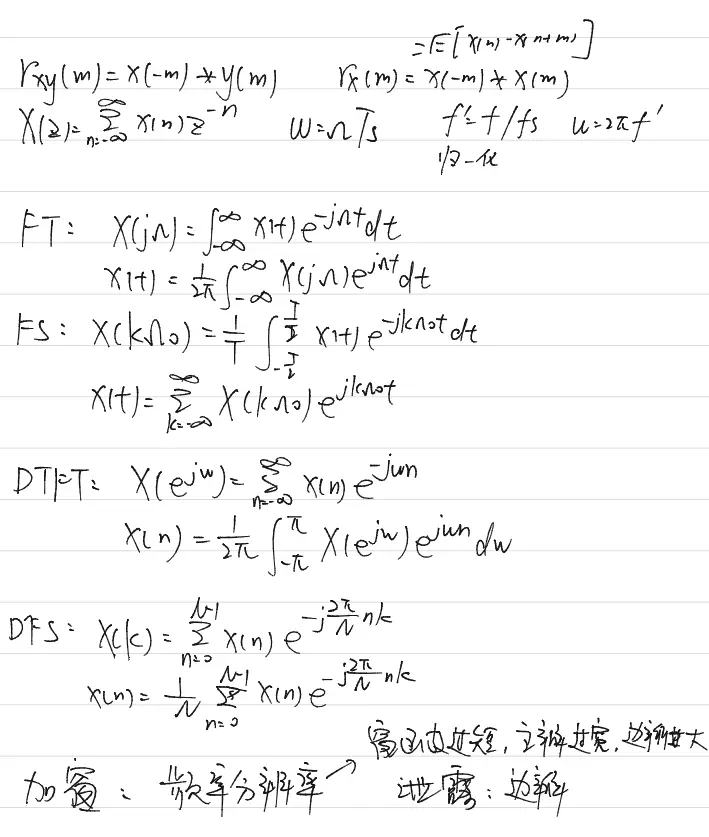 =E[x(n)-x(n+m)]
r_{xy}(m)=x(-m)*y(m) r_x(m)=x(-m)*x(m)
X(z)=\sum_{n=-∞}^{∞} x(n)z^{-n} ω=ΩTs f'=f/fs ω=2πf'
归一化
FT: X(jΩ)=∫_{-∞}^{∞} x(t)e^{-jΩt}dt
x(t)=\frac{1}{2π}∫_{-∞}^{∞} X(jΩ)e^{jΩt}dt
FS: X(kΩ_0)=\frac{1}{T}∫_{-\frac{T}{2}}^{\frac{T}{2}} x(t)e^{-jkΩ_0t}dt
x(t)=\sum_{k=-∞}^{∞} X(kΩ_0)e^{jkΩ_0t}
DTFT: X(e^{jω})=\sum_{n=-∞}^{∞} x(n)e^{-jωn}
x(n)=\frac{1}{2π}∫_{-π}^{π} X(e^{jω})e^{jωn}dω
DFS: X(k)=\sum_{n=0}^{N-1} x(n)e^{-j\frac{2π}{N}nk}
x(n)=\frac{1}{N}\sum_{n=0}^{N-1} x(n)e^{-j\frac{2π}{N}nk}
窗函过短,主瓣过宽,边瓣过大
加窗:频率分辨率↗ 泄露:边瓣